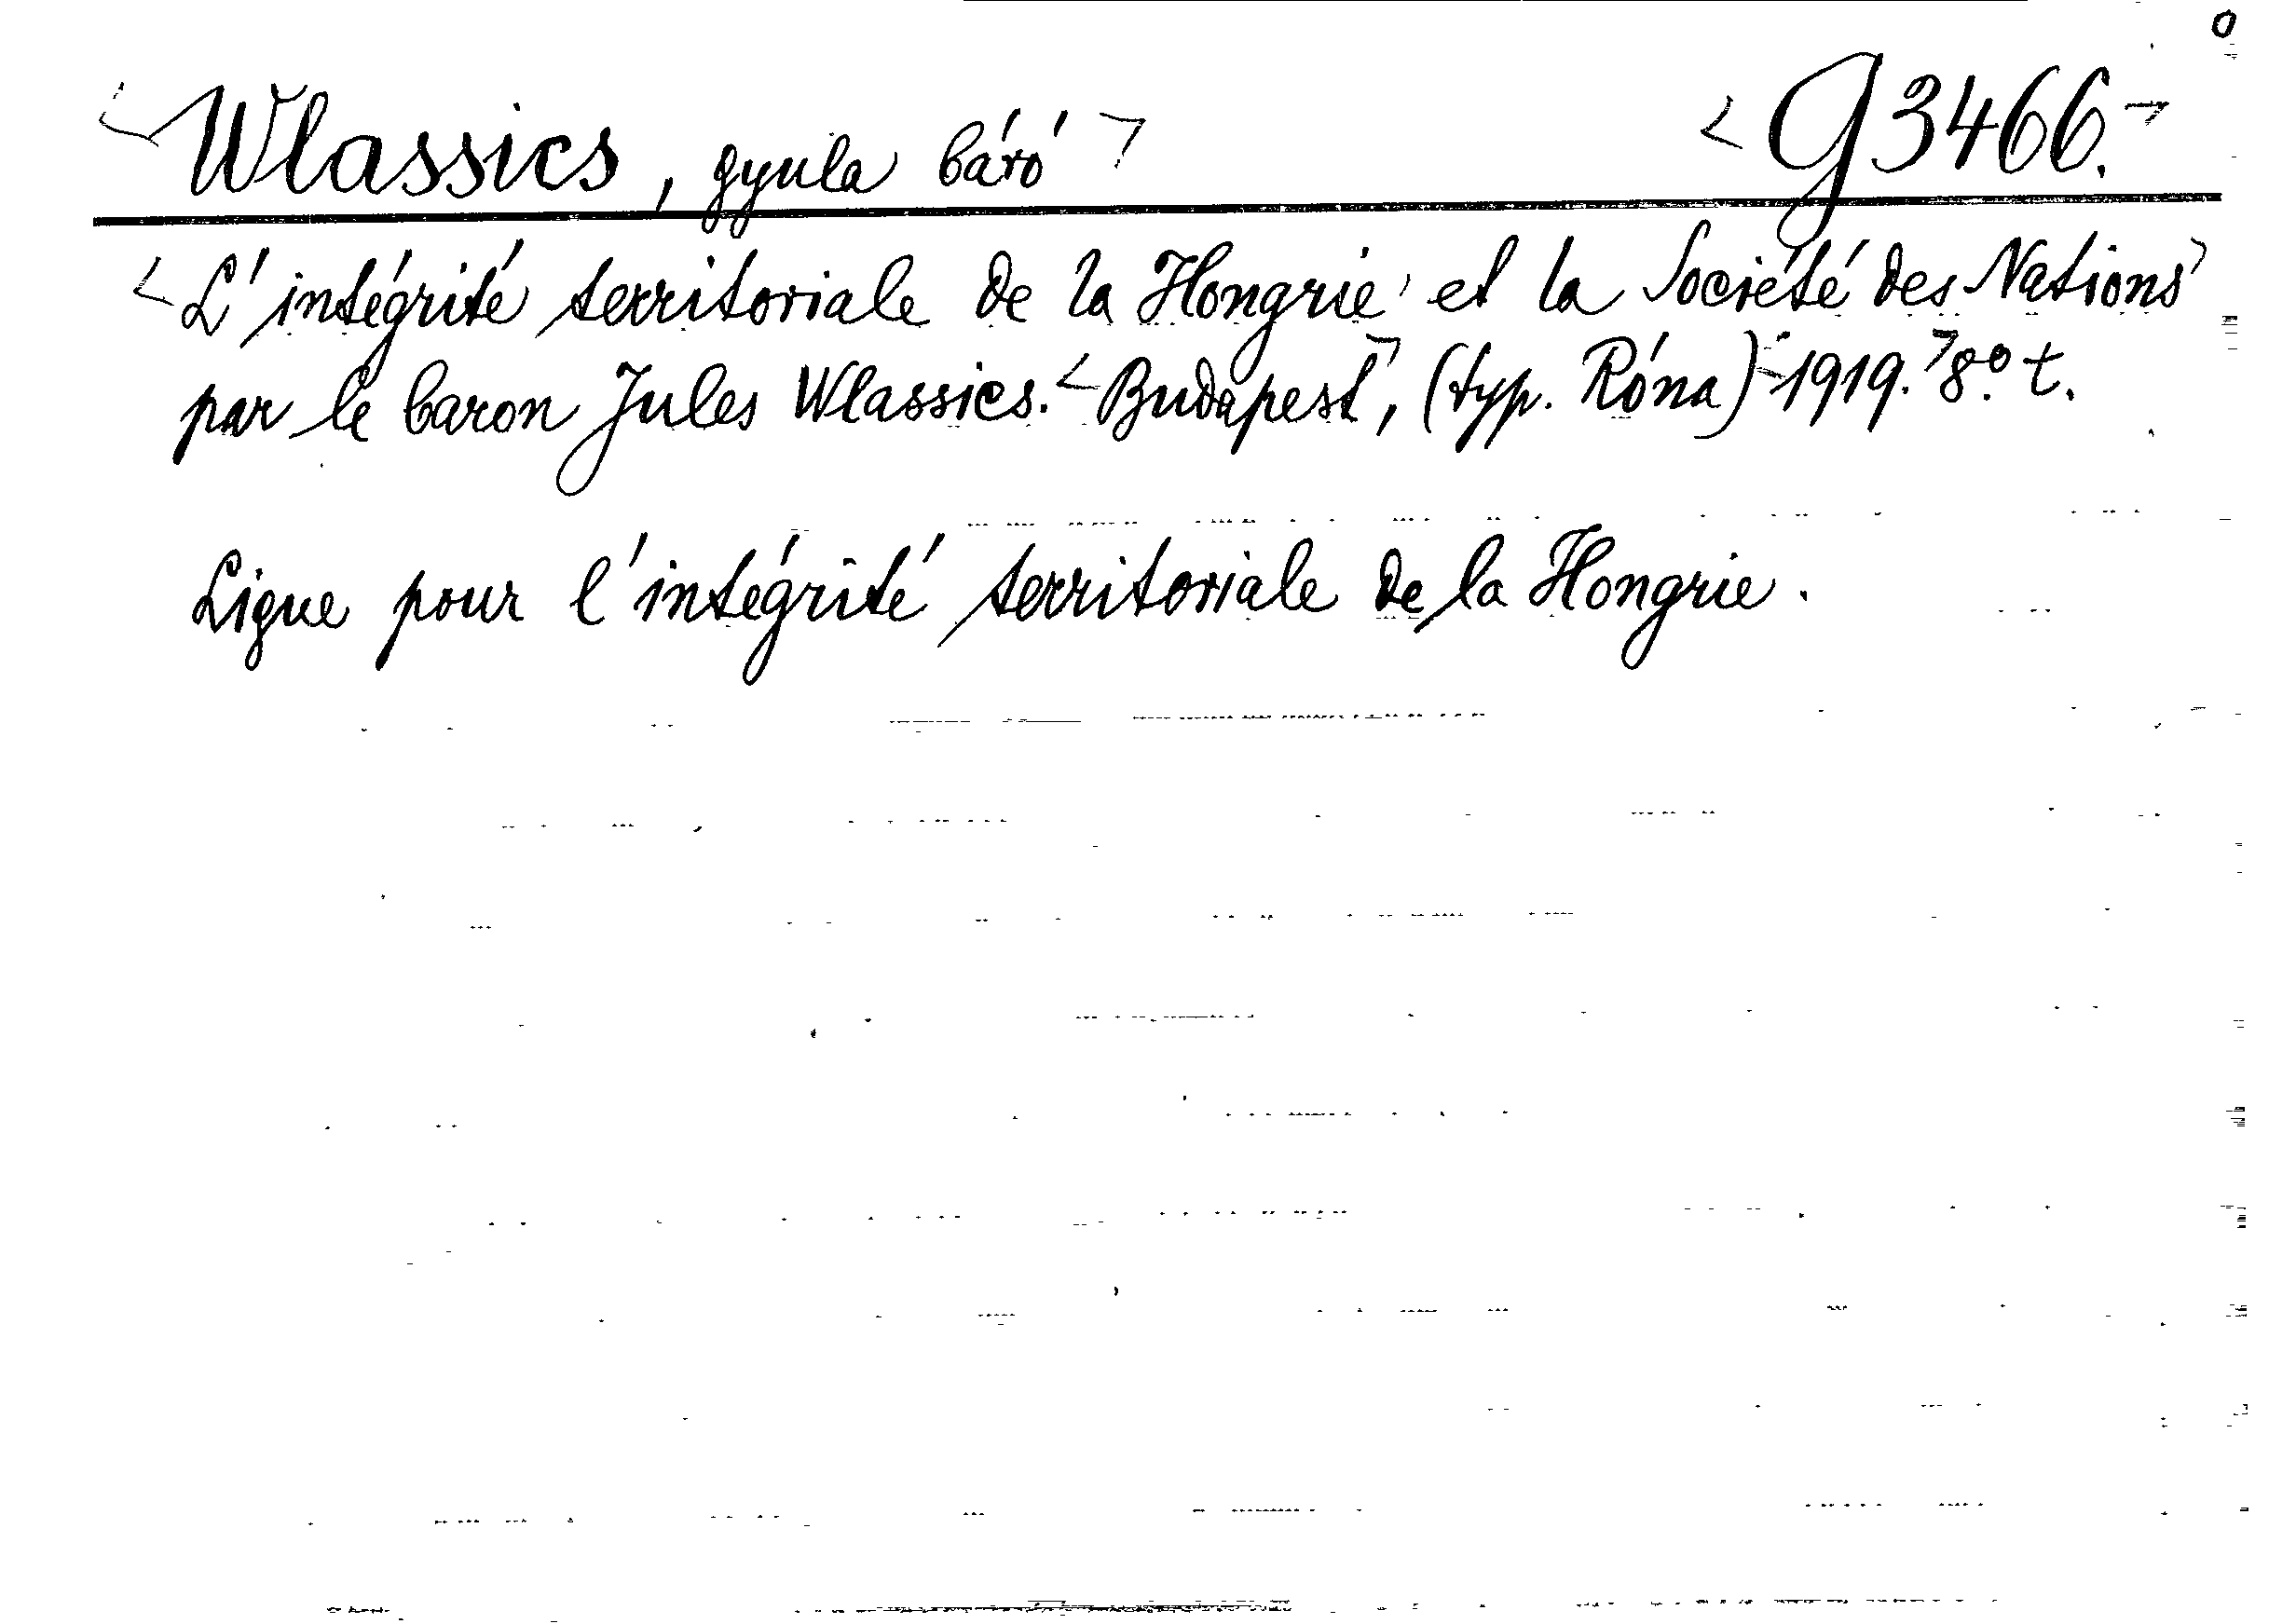 <Wlassics, Gyula báró> <G3466.>
<L'intégrité territoriale de la Hongrie et la Société des Nations>
par le baron Jules Wlassics. <Budapest>, (typ. Róna) <1919.> 8.° t.
Ligue pour l'intégrité territoriale de la Hongrie.